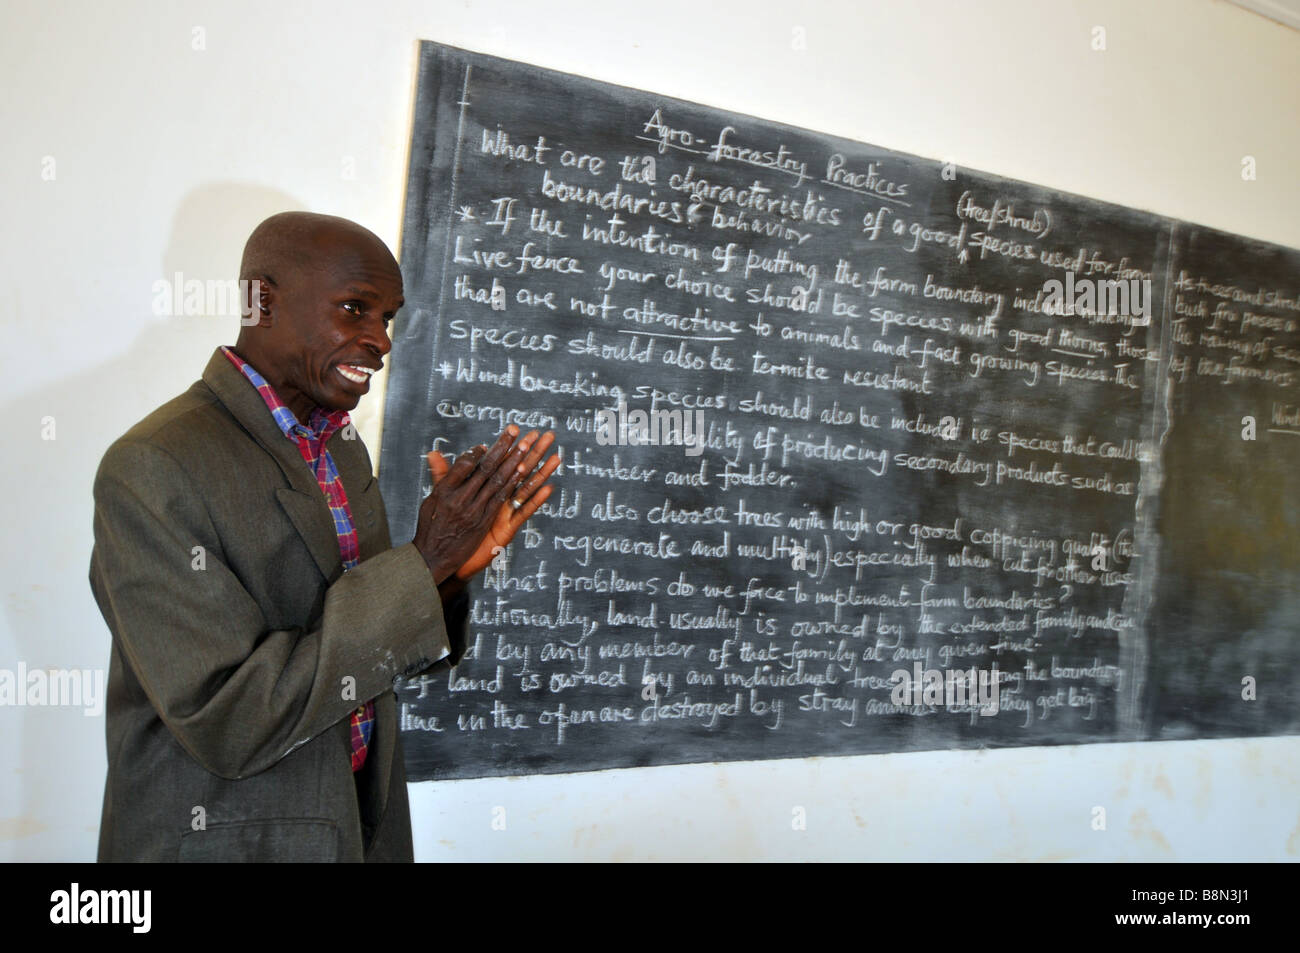 Agro-forestry Practices
What are the characteristics of a good species used for farm
(tree/shrub)
boundaries & behavior
* If the intention of putting the farm boundary includes
Live fence your choice should be species with good thorns, those
that are not attractive to animals and fast growing species. The
species should also be termite resistant
* Wind breaking species should also be included ie species that could be
evergreen with the ability of producing secondary products such as
timber and fodder.
also choose trees with high or good coppicing quality (the
to regenerate and multiply) especially when cut for other uses
What problems do we face to implement farm boundaries?
land usually is owned by the extended family and can
by any member of that family at any given time.
If land is owned by an individual trees planted along the boundary
line in the open are destroyed by stray animals before they get big
As trees and shrub
bush fire poses a
The
of
Wind
alamy
B8N3J1
www.alamy.com